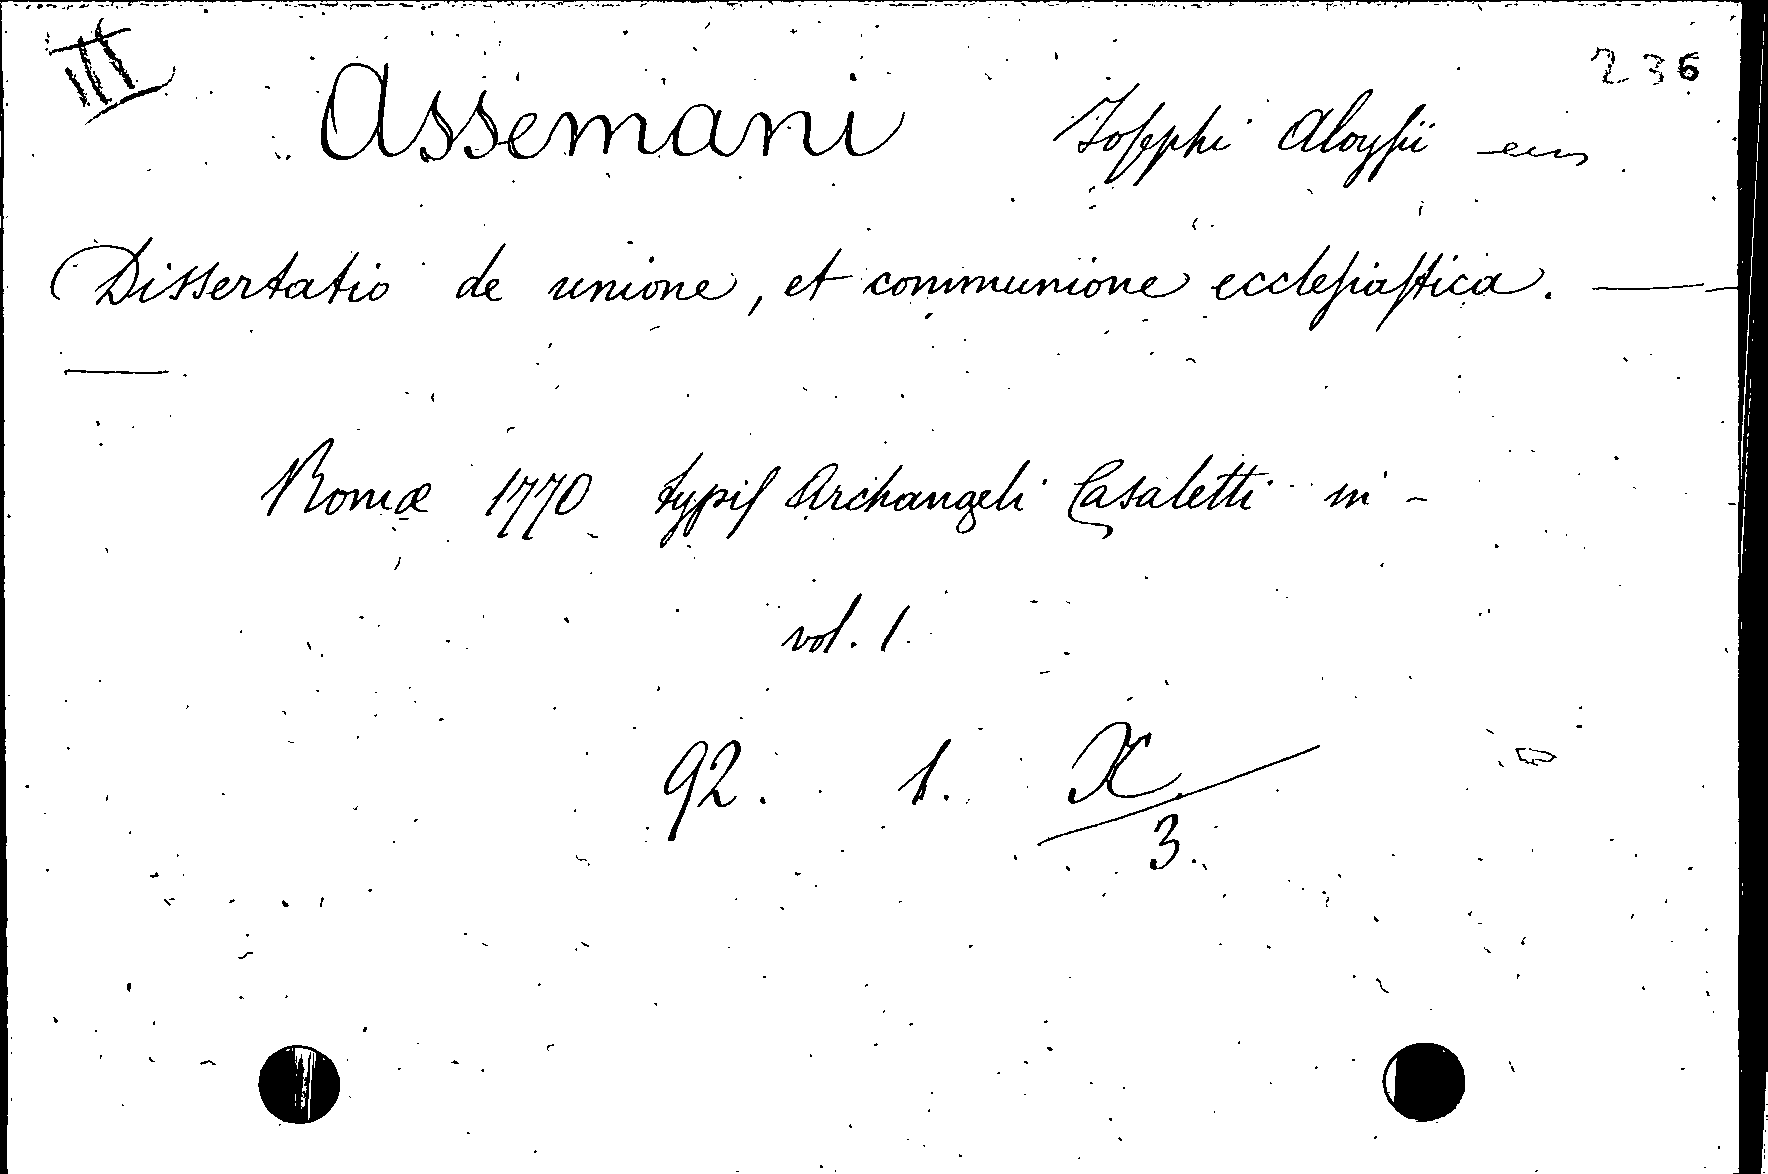 III
236
Assemani Josephi Aloysii
Dissertatio de unione, et communione ecclesiastica. ——
——
Romæ 1770 typis Archangeli Casaletti in -
vol. 1.
92. 1. X/3.